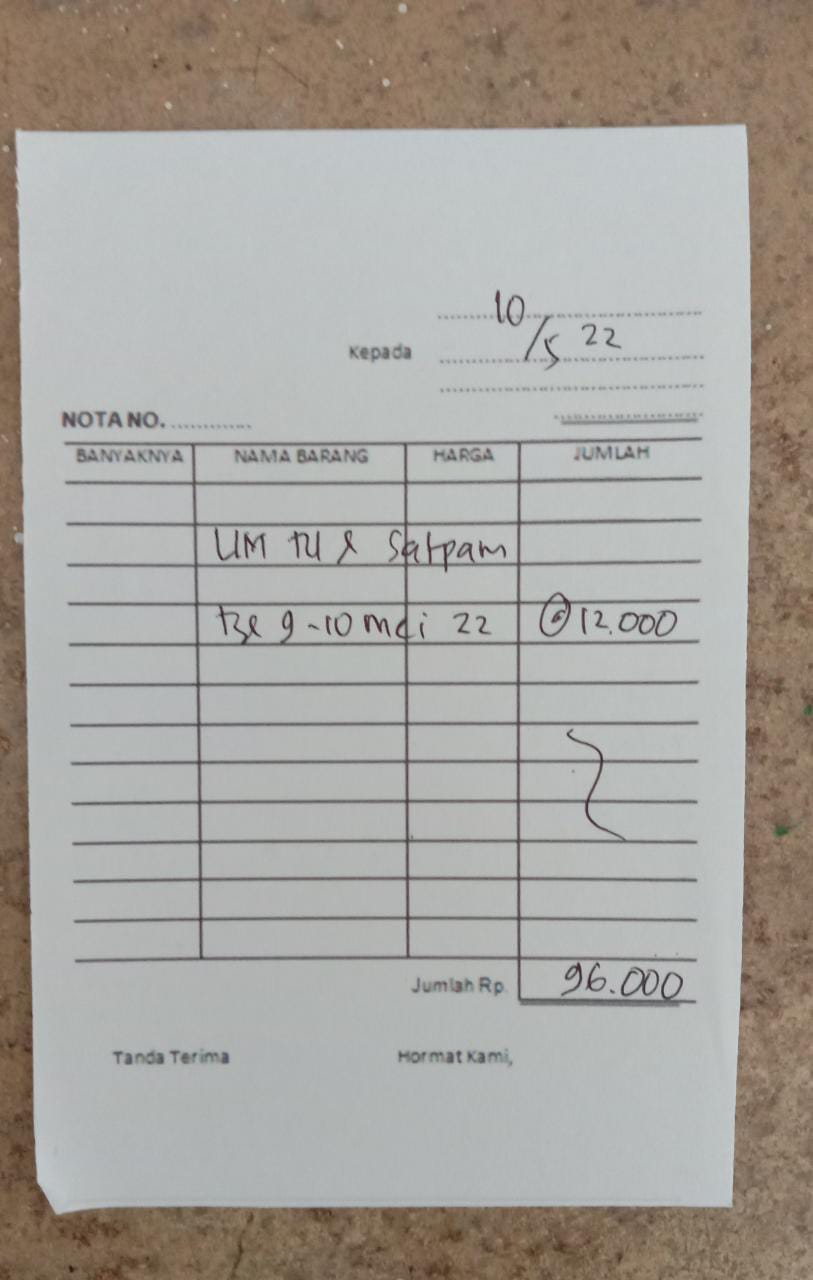 10/5 22
Kepada
NOTA NO. ............
BANYAKNYA NAMA BARANG HARGA JUMLAH
UM TU & Satpam
9-10 mei 22 @ 12.000
Jumlah Rp. 96.000
Tanda Terima Hormat Kami,